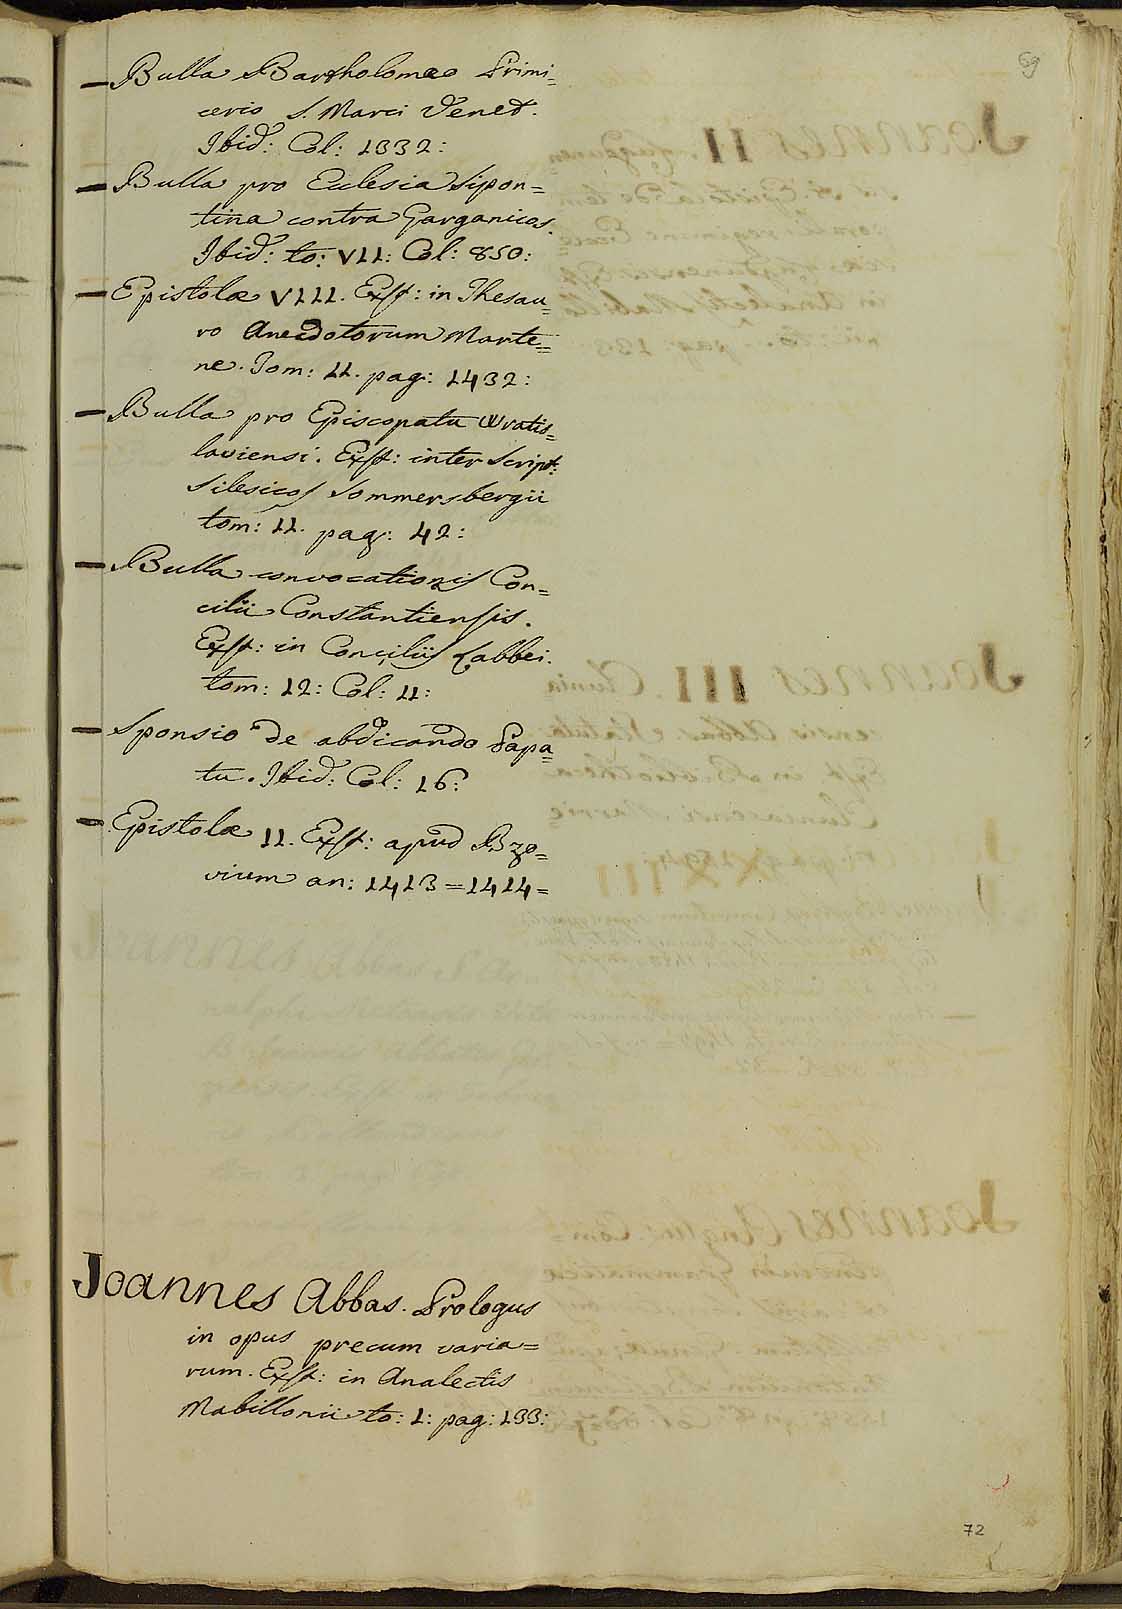 69
— Bulla Bartholomeo Primi=
cerio S. Marci Venet.
Ibid: Col: 1332:
— Bulla pro Ecclesia Sipon=
tina contra Garganicos.
Ibid: to: VII: Col: 850:
— Epistolæ VIII. Exst: in Thesau=
ro Anecdotorum Marte=
ne. Tom: II. pag: 1432:
— Bulla pro Episcopatu Wratis=
laviensi. Exst: inter Script:
Silesicos Sommersbergii
tom: II. pag: 42:
— Bulla convocationis Con=
cilii Constantiensis.
Exst: in Conciliis Labbei.
tom: 12: Col: 11:
— Sponsio de abdicando Papa=
tu. Ibid: Col: 16:
— Epistolæ II. Exst: apud Bzo=
vium an: 1413=1414=
Joannes Abbas. Prologus
in opus precum varia=
rum. Exst: in Analectis
Mabillonii to: 1: pag: 133:
72